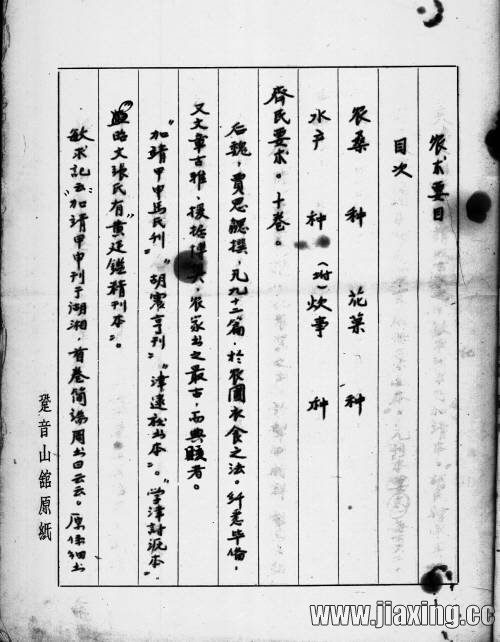 农朮要目
目次
农桑 种 花菓 种
水产 种 (坿)炊事 种
齊民要朮。十卷。
后魏，賈思勰撰，凡九十二篇，於农圃衣食之法。纤悉毕偹，
又文章古雅，援据博 ，农家书之最古，而典 者。
"加靖甲申馬氏刊" "胡震亨刊" "津逮祕书本"。"学津討 本"
昭文張氏有"黄廷鑑精刊本"。
敏求記云"加靖甲申刊于湖湘，首卷简端周书曰云云。原係细书
跫音山館原紙
www.jiaxing.cc